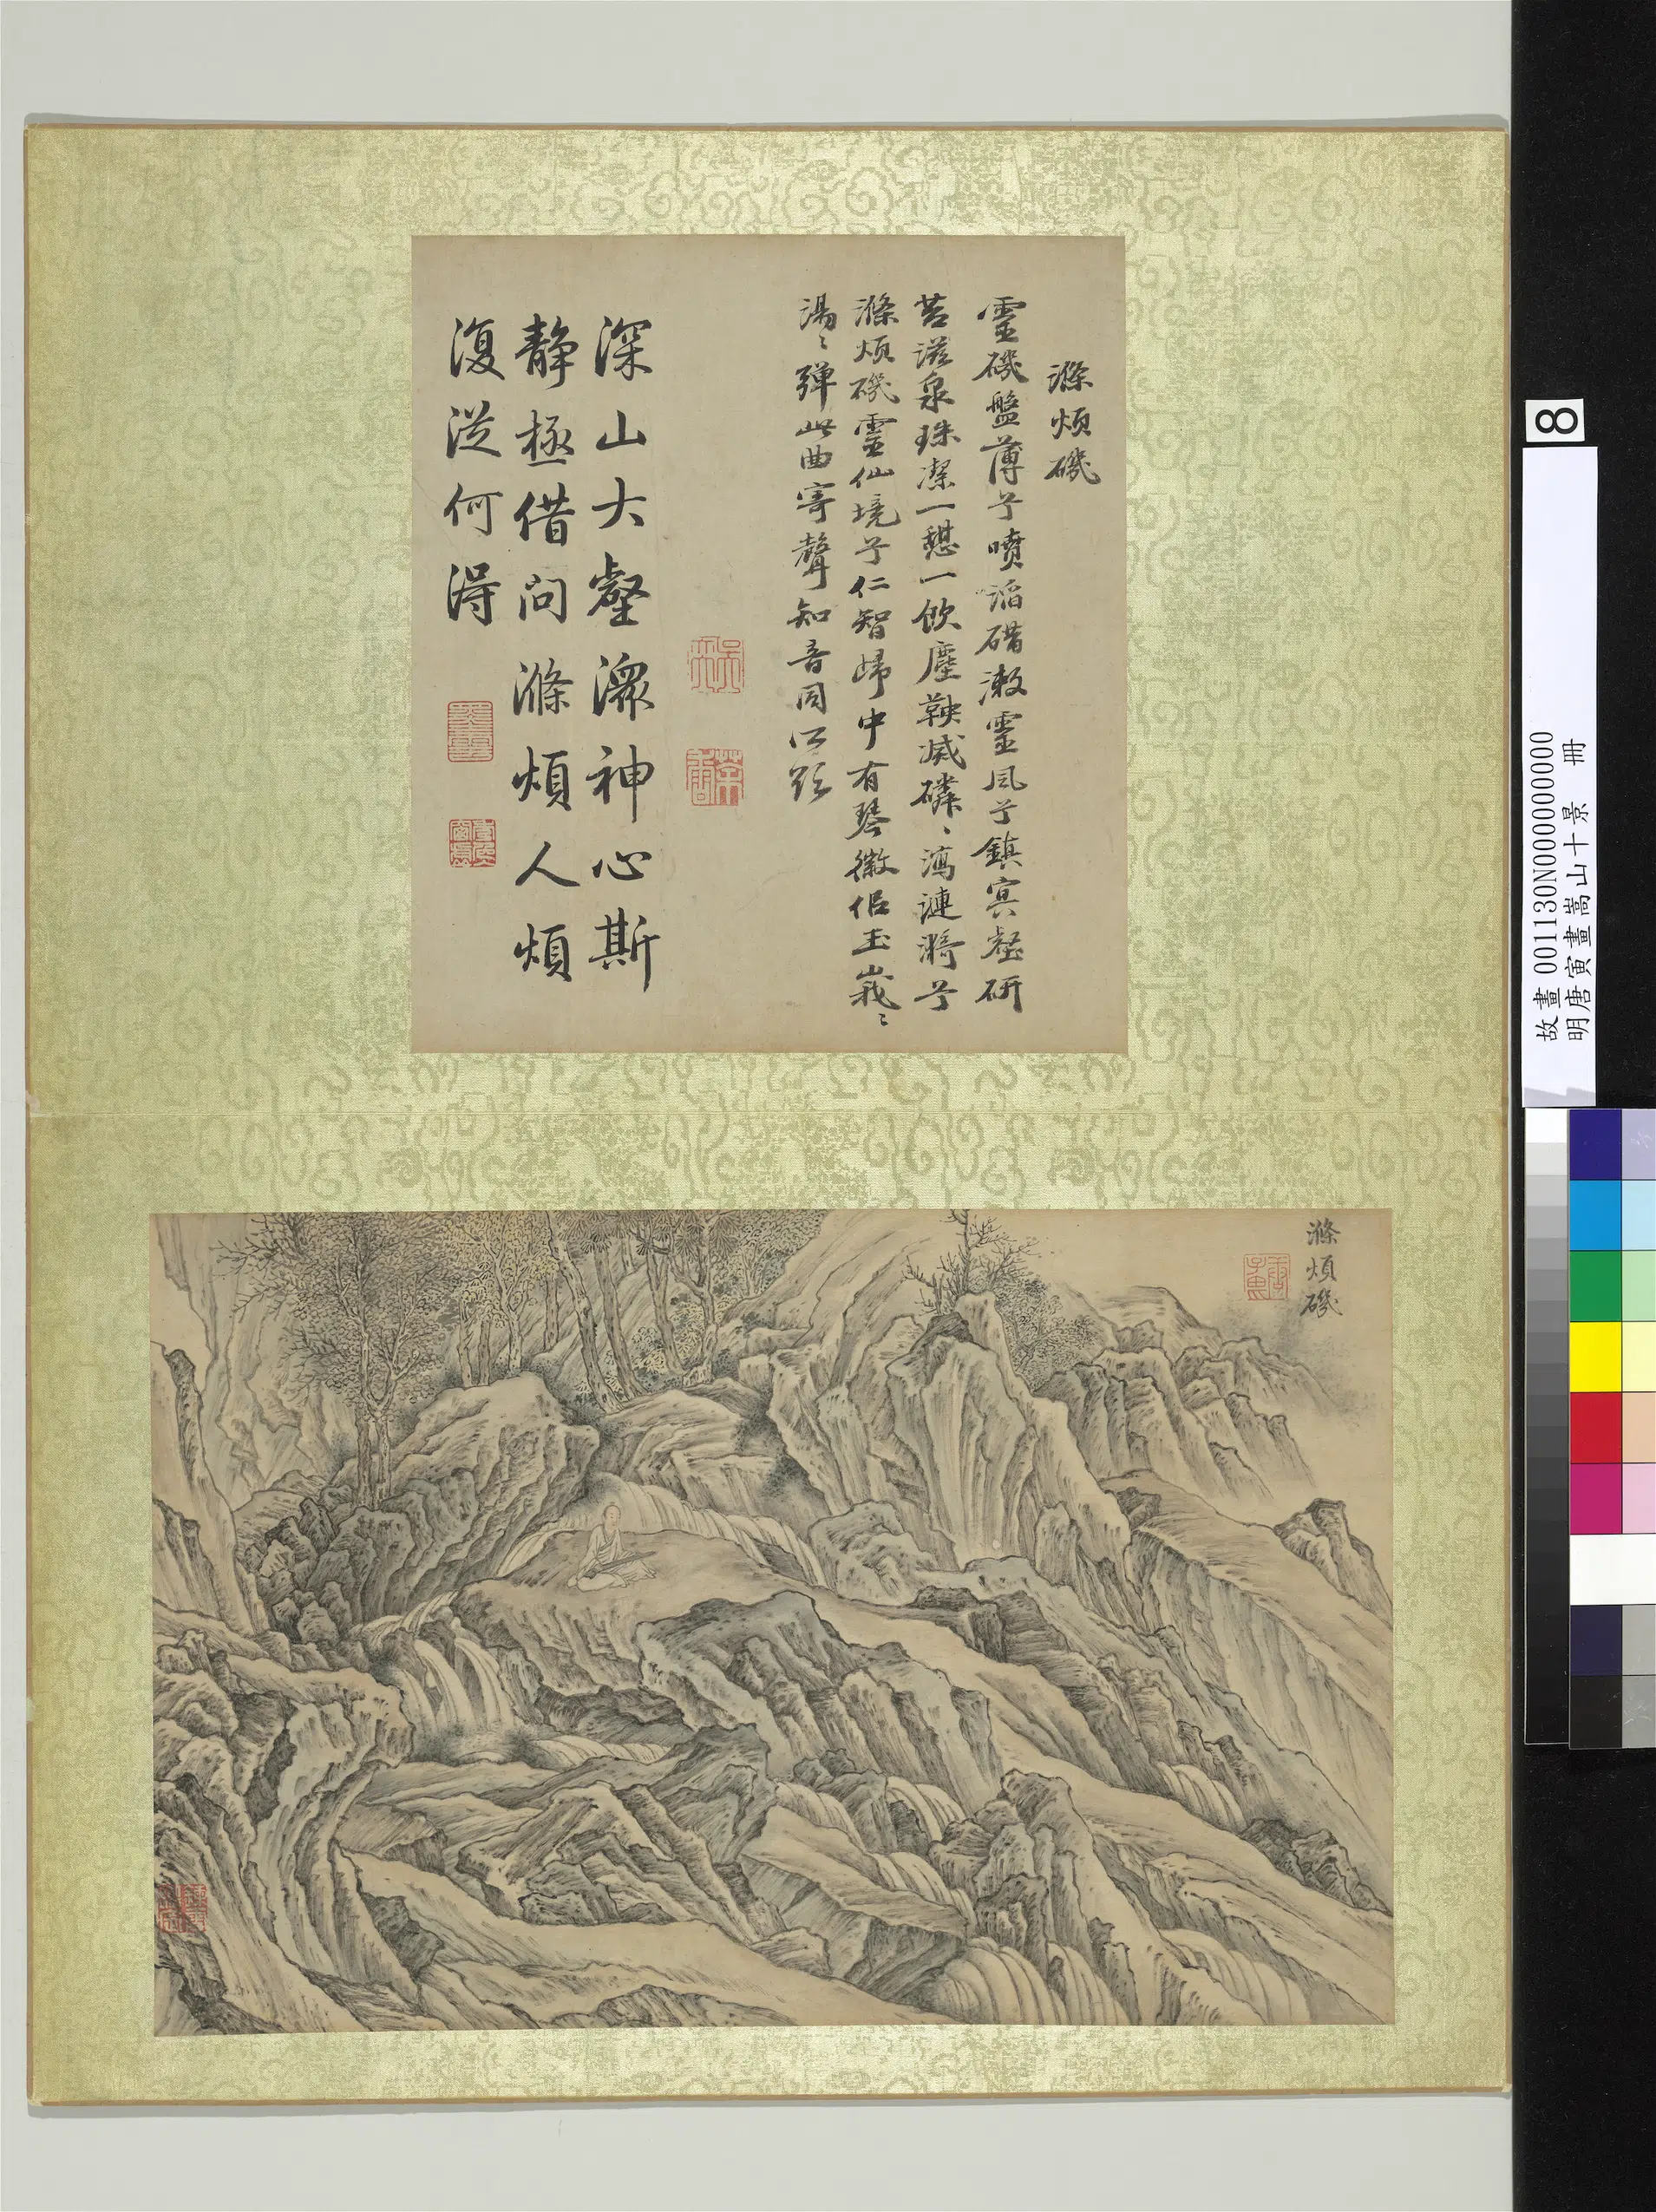 滌煩磯
靈磯盤薄兮噴溜碏漱靈風兮鎮冥壑研
苔滋泉珠潔一憩一飲塵鞅滅磷、漪漣漪兮
滌煩磯靈仙境兮仁智歸中有琴徽佀玉峩〻
湯〻彈此曲寄聲知音同所
深山大壑澡神心斯
靜極借問滌煩人煩
復從何得
滌煩磯
8
故畫 001130N000000000
明唐寅畫嵩山十景 冊